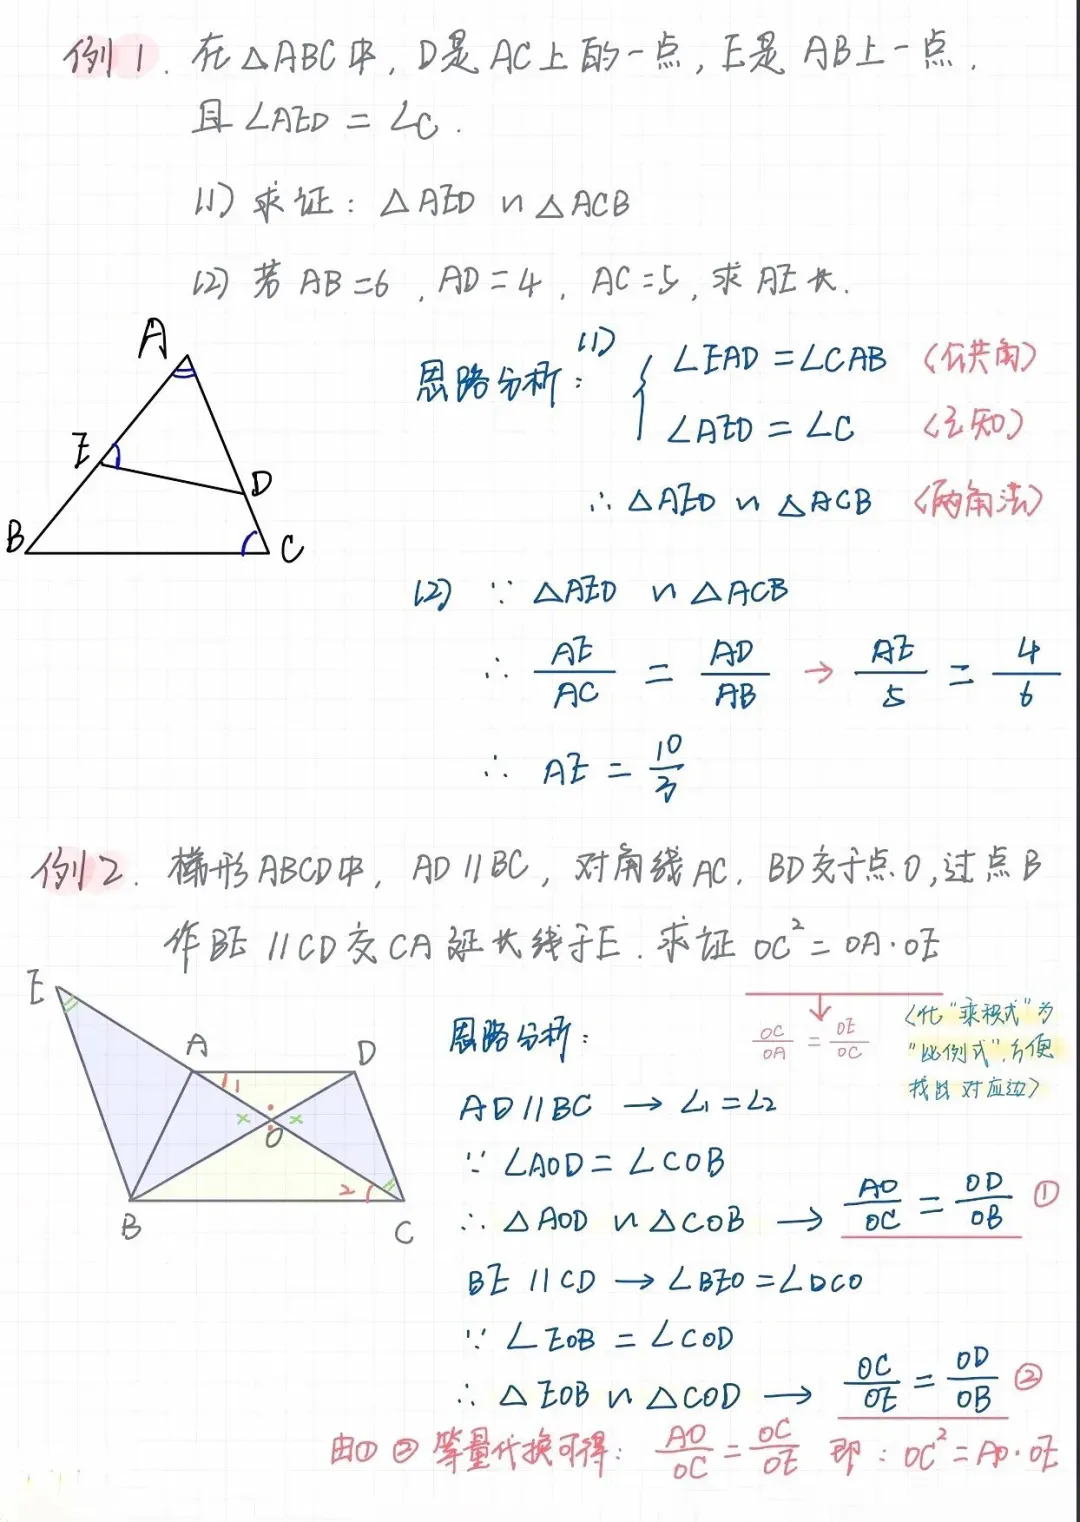 例1. 在△ABC中, D是AC上的一点, E是AB上一点.
且∠AED = ∠C.
(1) 求证: △AED ∽ △ACB
(2) 若 AB=6, AD=4, AC=5, 求AE长.
A
E
D
B
C
思路分析: (1) { ∠EAD = ∠CAB (公共角)
∠AED = ∠C (已知)
∴ △AED ∽ △ACB (两角法)
(2) ∵ △AED ∽ △ACB
∴ AE/AC = AD/AB → AE/5 = 4/6
∴ AE = 10/3
例2. 梯形ABCD中, AD∥BC, 对角线AC, BD交于点O, 过点B
作BE∥CD交CA延长线于E. 求证 OC² = OA·OE
E
A
D
1
O
2
B
C
OC/OA = OE/OC
(化"乘积式"为
"比例式", 方便
找出对应边)
思路分析:
AD∥BC → ∠1=∠2
∵ ∠AOD = ∠COB
∴ △AOD ∽ △COB → AO/OC = OD/OB ①
BE∥CD → ∠BEO = ∠DCO
∵ ∠EOB = ∠COD
∴ △EOB ∽ △COD → OC/OE = OD/OB ②
由① ② 等量代换可得: AO/OC = OC/OE 即: OC² = AO·OE